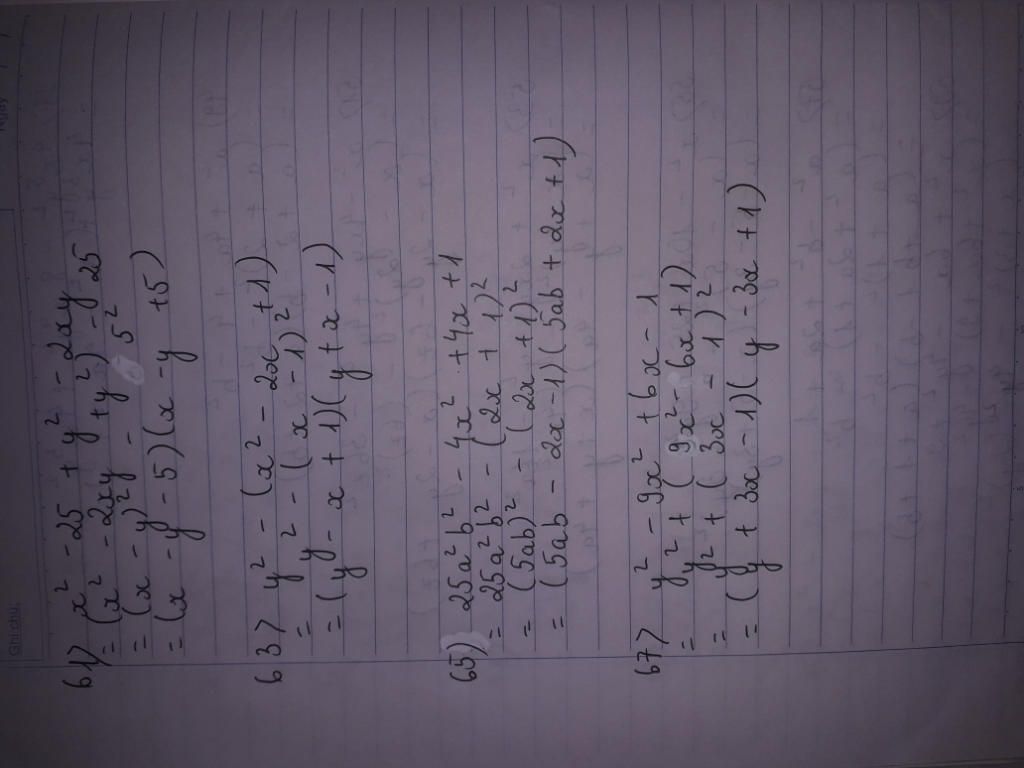 Ngày
Ghi chú:
61) x² - 25 + y² - 2xy
= (x² - 2xy + y²) - 25
= (x - y)² - 5²
= (x - y - 5)(x - y + 5)
63) y² - (x² - 2x + 1)
= y² - (x - 1)²
= (y - x + 1)(y + x - 1)
65) 25a²b² - 4x² + 4x + 1
= 25a²b² - (2x + 1)²
= (5ab)² - (2x + 1)²
= (5ab - 2x - 1)(5ab + 2x + 1)
67) y² - 9x² + 6x - 1
= y² + (9x² - 6x + 1)
= y² + (3x - 1)²
= (y + 3x - 1)(y - 3x + 1)